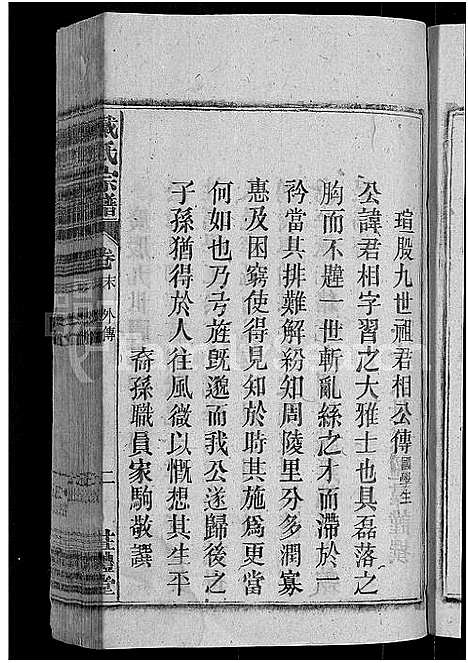 瑄股九世祖君相公傳國學生
公諱君相字習之大雅士也具磊落之
胸而不韙一世斬亂絲之才而滯於一
衿當其排難解紛知周陵里分多潤寡
惠及困窮使得見知於時其施爲更當
何如也乃弓旌既邈而我公遂歸後之
子孫猶得於人往風微以慨想其生平
裔孫職員家駒敬譔
戴氏宗譜
卷末 外傳
二